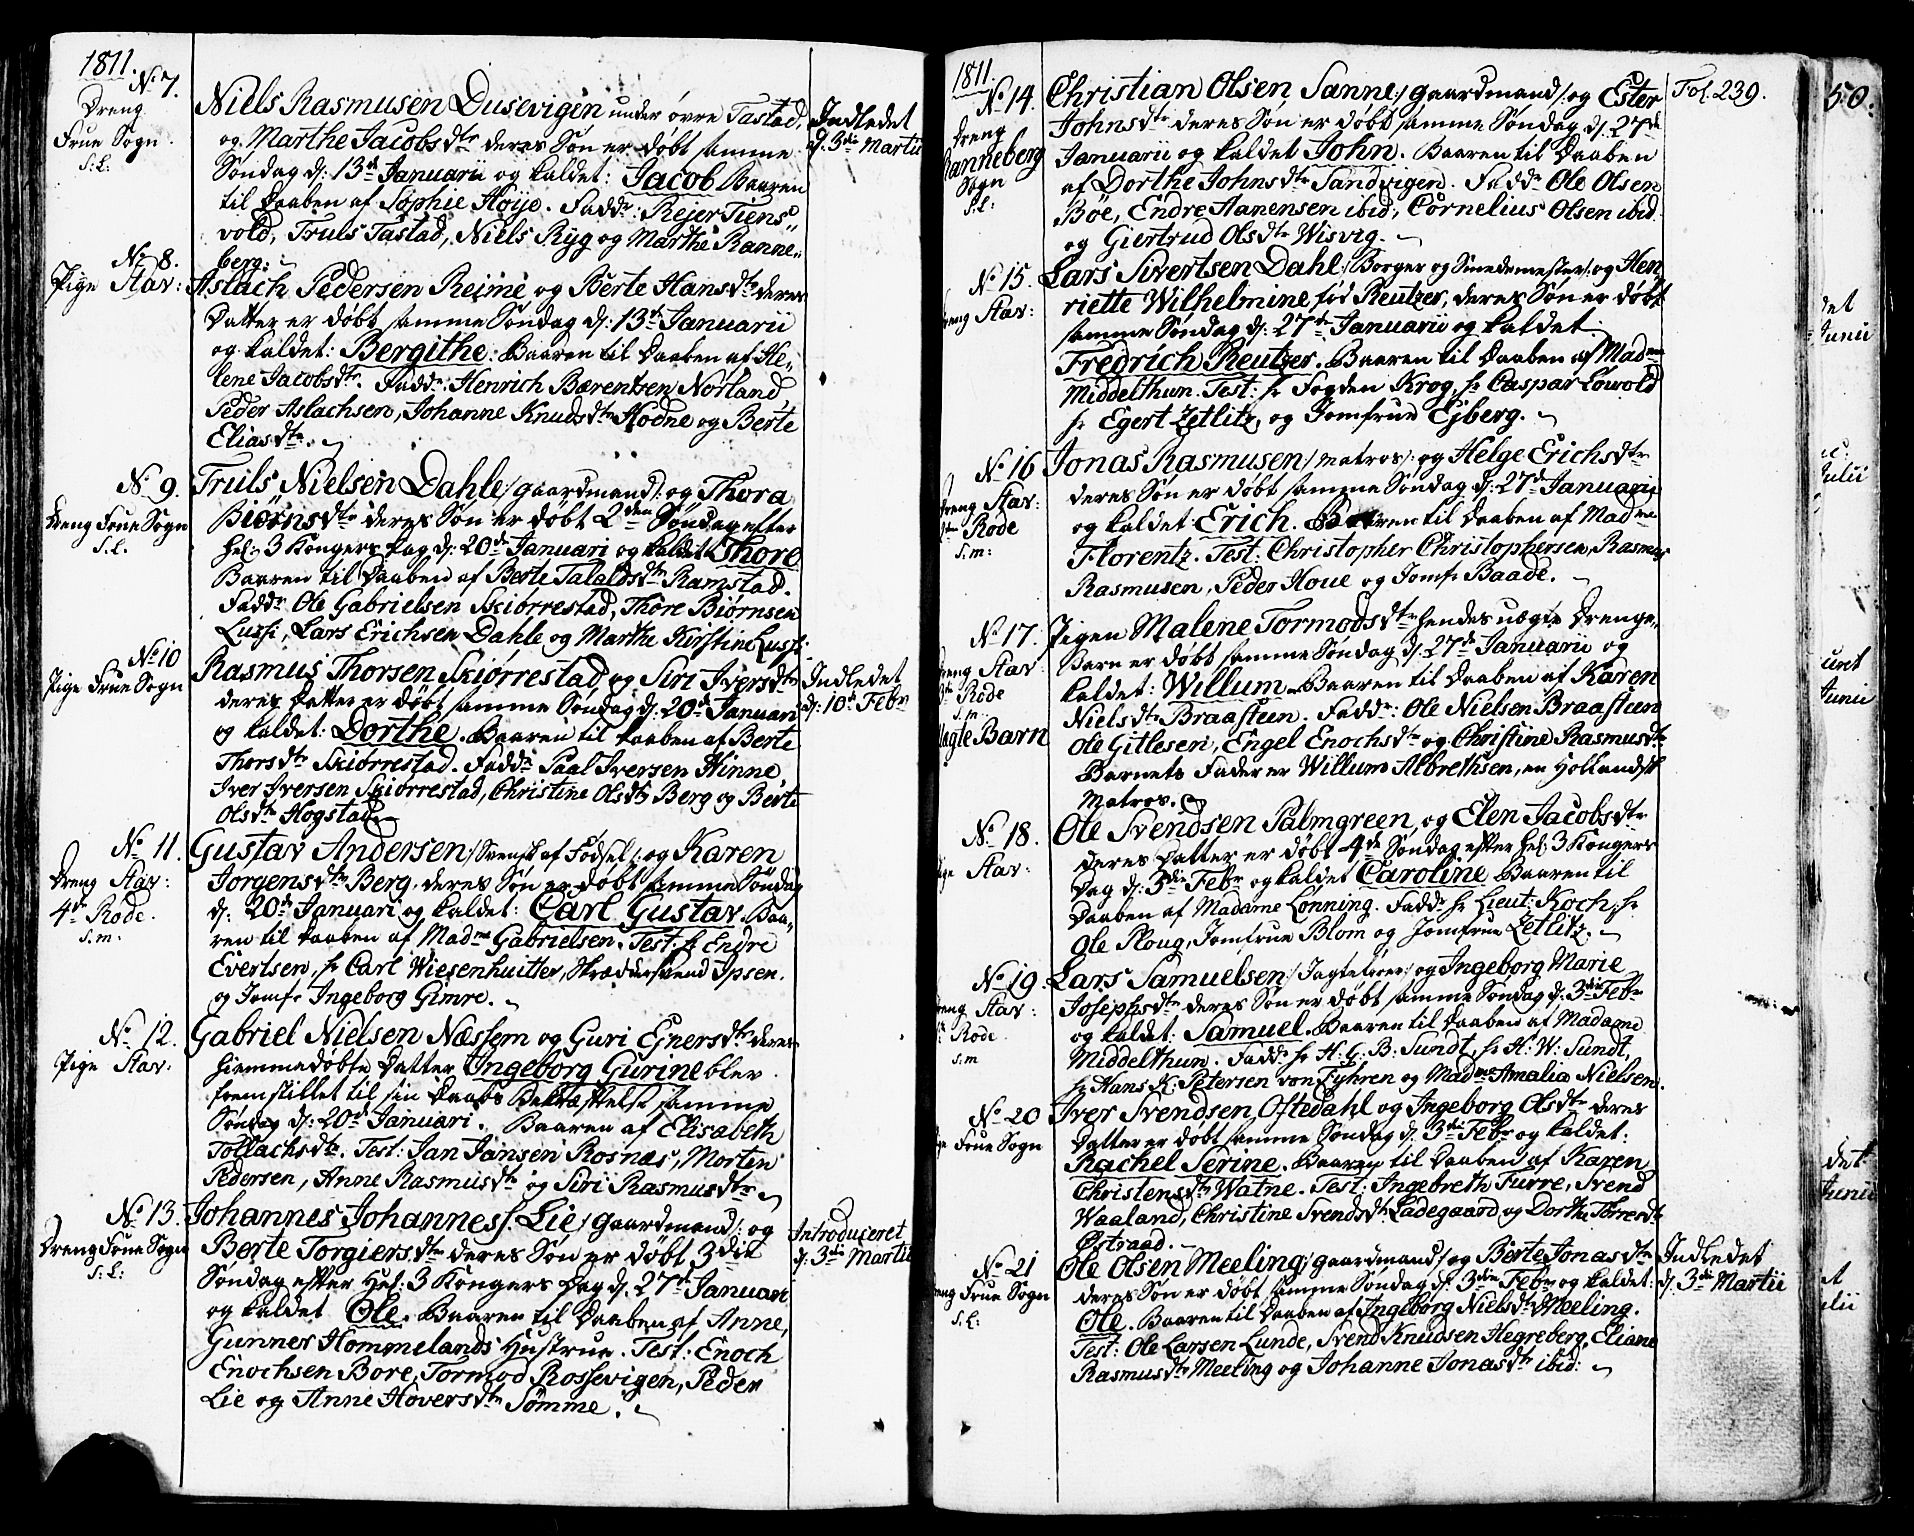 1811.
No 7.
Dreng
Frue Sogn
s. l:
Niels Rasmusen Dusevigen under øvre Tastad,
og Marthe Jacobsdtr deres Søn er døbt samme
Søndag d: 13de Januarii og kaldet: Jacob. Baaren
til Daaben af Sophie Høije. Faddr: Rejer Tiens"
vold, Truls Tastad, Niels Ryg og Marthe Ranne"
berg:
Indledet
d. 3die Martii
No 8.
Pige Stav:
Aslach Pedersen Reime og Berte Hansdtr deres
Datter er døbt samme Søndag d: 13de Januarii
og kaldet: Bergithe. Baaren til Daaben af He"
lene Jacobsdtr. Faddr: Henrich Bærentzen Norland,
Peder Aslachsen, Johanne Knudsdtr Hodne og Berte
Eliasdtr.
No 9.
Dreng Frue Sogn
s. l.
Truls Nielsen Dahle /: gaardmand :/ og Thora
Biørnsdtr deres Søn er døbt 2den Søndag efter
hel: 3 Kongers Dag d: 20de Januari og kaldet Thore.
Baaren til Daaben af Berte Talaldsdtr Ramstad.
Faddr Ole Gabrielsen Skiørrestad, Thore Biørnsen
Lussi, Lars Erichsen Dahle og Marthe Kirstine Lussi.
No 10
Pige Frue Sogn
Rasmus Thorsen Skiørrestad og Siri Iversdtr
deres Datter er døbt samme Søndag d: 20de Januari
og kaldet: Dorthe. Baaren til Daaben af Berte
Thorsdtr Skiørrestad. Faddr Paal Iversen Hinne,
Iver Iversen Skiørrestad, Christine Olsdtr Berg og Berte
Olsdtr Hogstad.
Indledet
d: 10de Febr
No 11.
Dreng Stav:
4de Rode.
s. m:
Gustav Andersen /: Svensk af Fødsel :/ og Karen
Jørgensdtr Berg, deres Søn er døbt samme Søndag
d: 20de Januari og kaldet: Carl Gustav. Baa"
ren til Daaben af Madme Gabrielsen. Test: hr Endre
Evertsen, hr Carl Wiesenhuitter, Skrædersvend Ipsen.
og Jomfr Ingeborg Gimre.
No 12.
Pige Stav:
Gabriel Nielsen Næssem og Guri Ejnersdtr deres
hiemmedøbte Datter Ingeborg Gurine blev
fremstillet til sin Daabs Bekræftelse samme
Søndag d: 20de Januari. Baaren af Elisabeth
Tollachsdtr. Test: Jan Jansen Rosnæs, Morten
Pedersen, Anne Rasmusdtr og Siri Rasmusdtr
No 13.
Dreng Frue Sogn
s: l:
Johannes Johanness. Lie /: gaardmand :/ og
Berte Torgiersdtr deres Søn er døbt 3die
Søndag efter Hel: 3 Kongers Dag d: 27de Januari
og kaldet Ole. Baaren til Daaben af Anne,
Gunner Hommelands Hustrue. Test: Enoch
Enochsen Bore, Tormod Rossevigen, Peder
Lie og Anne Hoversdtr Sømme.
Introduceret
d: 3die Martii
1811.
No 14.
Dreng
Ranneberg
Sogn
s. l:
Christian Olsen Sanne /: gaardmand :/ og Ester
Johnsdtr deres Søn er døbt samme Søndag d: 27de
Januarii og kaldet John. Baaren til Daaben
af Dorthe Johnsdtr Sandvigen. Faddr Ole Olsen
Bøe, Endre Aanensen ibid:, Cornelius Olsen ibid.
og Giertrud Olsdtr Wisvig.
Fol. 239.
No 15.
Dreng Stav:
Lars Sivertsen Dahl /: Borger og Smedemester :/ og Hen
riette Wilhelmine fød Reutzer, deres Søn er døbt
samme Søndag d: 27de Januarii og kaldet
Fredrich Reutzer. Baaren til Daaben af Madme
Middelthun. Test: hr Fogden Krog, hr Caspar Lowold
hr Egert Zetlitz, og Jomfrue Ejberg.
No 16
Dreng Stav:
Rode
s. m:
Jonas Rasmusen /: matros :/ og Helge Erichsdtr
deres Søn er døbt samme Søndag d: 27de Januarii
og kaldet Erich. Baaren til Daaben af Madme
Florentz. Test: Christopher Christophersen, Rasmus
Rasmusen, Peder Houe og Jomfr Baade.
No 17.
Dreng Stav:
3die Rode
s. m.
Uægte Barn
Pigen Malene Tormodsdtr hendes uægte Drenge"
Barn er døbt samme Søndag d: 27de Januarii og
kaldet: Willum. Baaren til Daaben af Karen
Nielsdtr Braasteen. Faddr: Ole Nielsen Braasteen
Ole Gitlesen, Engel Enochsdtr og Christine Rasmusdtr
Barnets Fader er Willum Albrethsen, en Hollandsk
Matros.
No 18.
Pige Stav:
Ole Svendsen Palmgreen, og Elen Jacobsdtr
deres Datter er døbt 4de Søndag efter hel: 3 Kongers
Dag d: 3die Febr og kaldet Caroline. Baaren til
Daaben af Madame Lønning. Faddr hr Lieut: Koch, hr
Ole Ploug, Jomfrue Blom og Jomfrue Zetlitz.
No 19.
Dreng Stav:
Rode
s. m
Lars Samuelsen /: Jagtefører :/ og Ingeborg Marie
Josephsdtr deres Søn er døbt samme Søndag d: 3die Febr
og kaldet: Samuel. Baaren til Daaben af Madame
Middelthun. Faddr hr H: G: B: Sundt, hr H: W: Sundt,
hr Hans K: Petersen von Fyhren og Madme Amalia Nielsen.
No 20
Pige Frue Sogn
Iver Svendsen Oftedahl og Ingeborg Olsdtr deres
Datter er døbt samme Søndag d: 3die Febr og kaldet:
Rachel Serine. Baaren til Daaben af Karen
Christensdtr Watne. Test: Ingebreth Furre, Svend
Waaland, Christine Svendsdtr Ladegaard og Dorthe Torresdtr
Østraad.
No 21
Dreng Frue Sogn
s. l:
Ole Olsen Meeling /: gaardmand :/ og Berte Jonasdtr
deres Søn er døbt samme Søndag d: 3die Febr og kaldet:
Ole. Baaren til Daaben af Ingeborg Nielsdtr Meeling.
Test: Ole Larsen Lunde, Svend Knudsen Hegreberg, Eliane
Rasmusdtr Meeling og Johanne Jonasdtr ibid:
Indledet
d: 3die Martii
50.